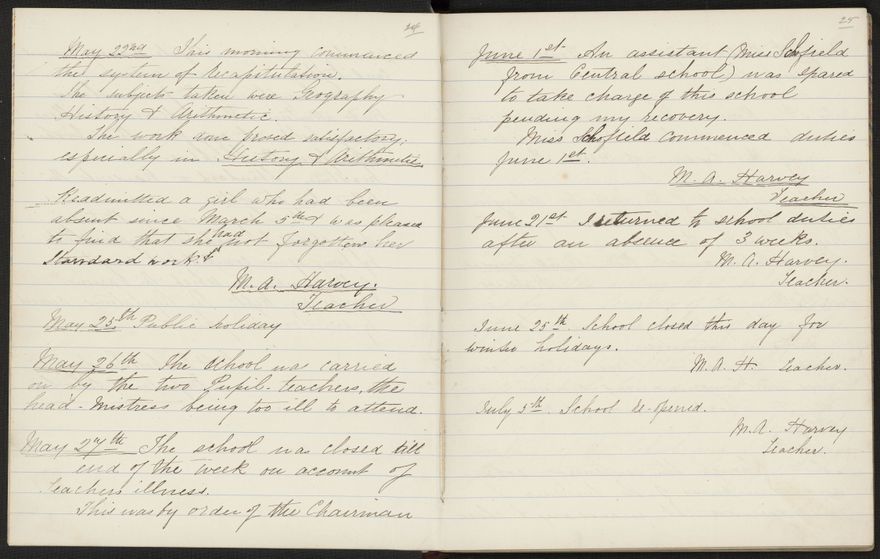 24
May 22nd This morning commenced
the system of Recapitulation.
The subjects taken were Geography
History & Arithmetic.
The work done proved satisfactory,
especially in History & Arithmetic.
Readmitted a girl who had been
absent since March 5th & was pleased
to find that she had not forgotten her
Standard work.
M. A. Harvey.
Teacher
May 25th Public holiday
May 26th The school was carried
on by the two Pupil-teachers, the
head-Mistress being too ill to attend.
May 27th The school was closed till
end of the week on account of
Teachers illness.
This was by order of the Chairman
25
June 1st An assistant (Miss Schofield
from Central school) was spared
to take charge of this school
pending my recovery.
Miss Schofield commenced duties
June 1st.
M. A. Harvey
Teacher
June 21st I returned to school duties
after an absence of 3 weeks.
M. A. Harvey.
Teacher.
June 25th School closed this day for
winter holidays.
M. A. H. Teacher.
July 5th School re-opened.
M. A. Harvey
Teacher.